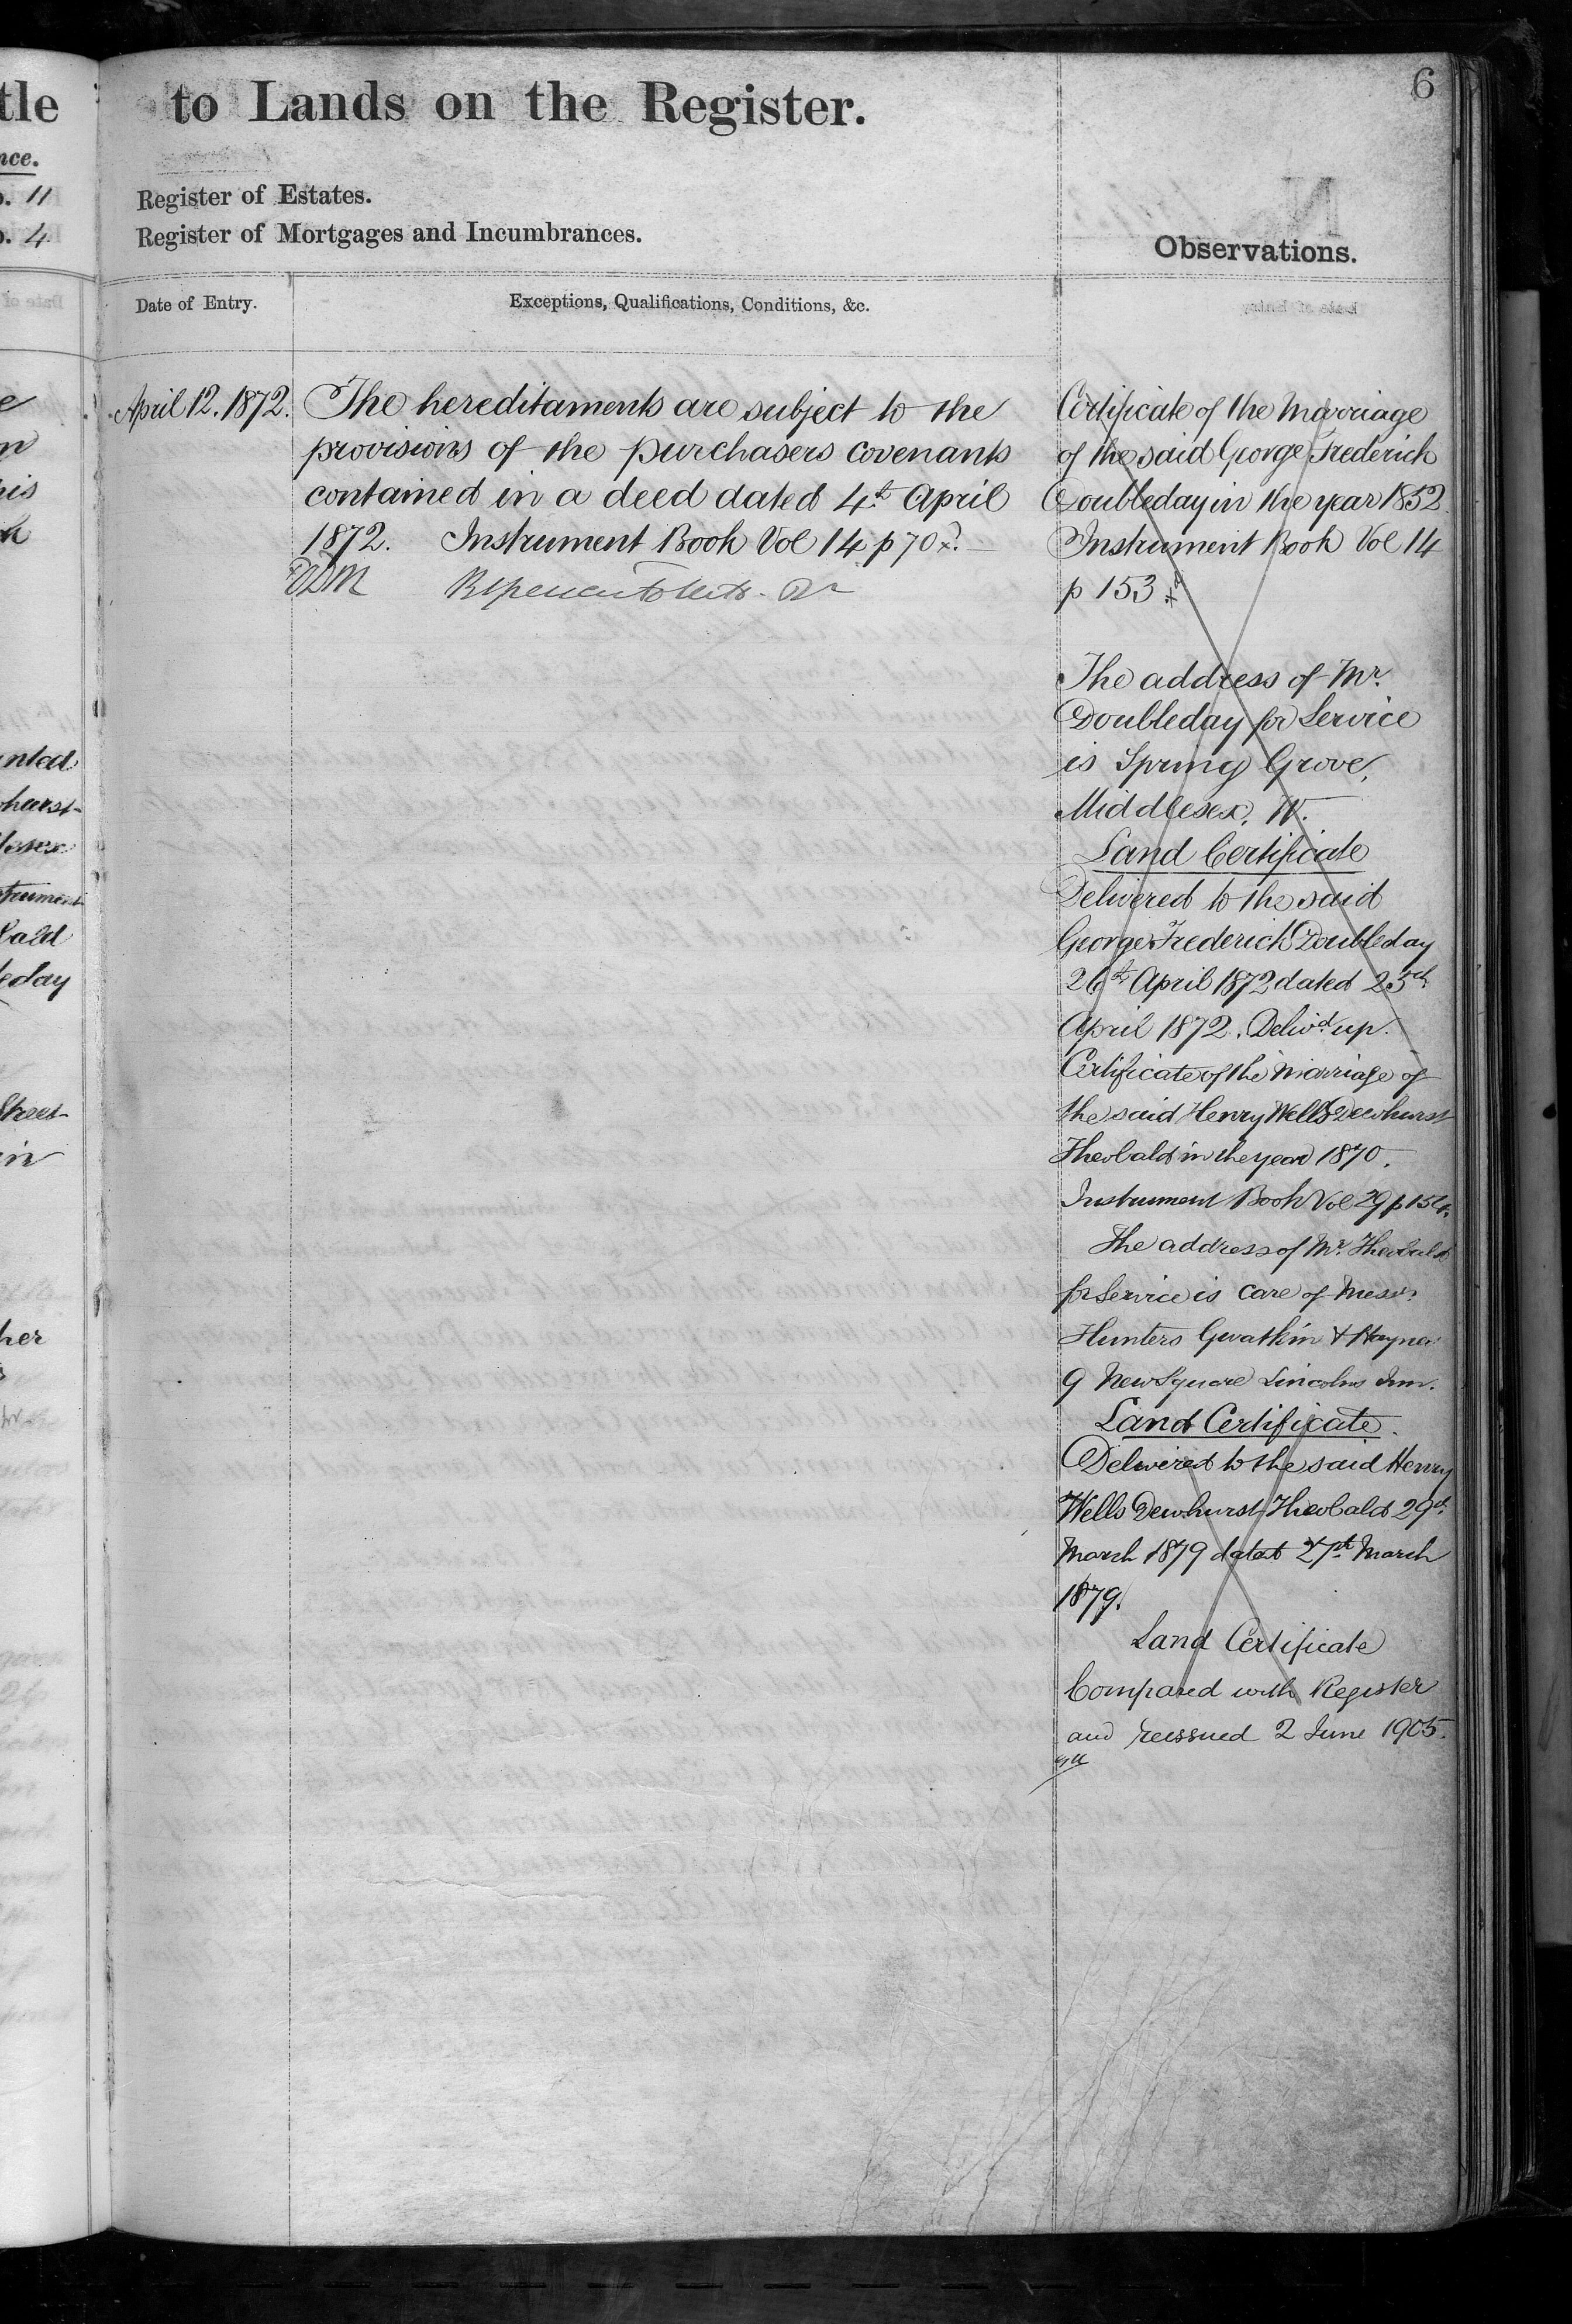 6
tle to Lands on the Register.
nce.
11 Register of Estates.
4 Register of Mortgages and Incumbrances.
Observations.
Date of Entry. Exceptions, Qualifications, Conditions, &c.
April 12. 1872. The hereditaments are subject to the
provisions of the purchasers covenants
contained in a deed dated 4th April
1872. Instrument Book Vol 14 p 70
Certificate of the Marriage
of the said George Frederick
Doubleday in the year 1852.
Instrument Book Vol 14
p 153
The address of Mr.
Doubleday for Service
is Spring Grove,
Middlesex. W.
Land Certificate
Delivered to the said
George Frederick Doubleday
26th April 1872 dated
April 1872. Delivd. up.
Certificate of the Marriage of
the said Henry Wells Dewhurst
Theobald in the year 1870.
Instrument Book Vol 29 p
The address of Mr. Theobald
for Service is care of Messrs.
Hunters Gwatkin & Haynes
9 New Square Lincolns Inn.
Land Certificate.
Delivered to the said Henry
Wells Dewhurst Theobald 29th
March 1879 dated 27th March
1879.
Land Certificate
Compared with Register
and reissued 2 June 1905.